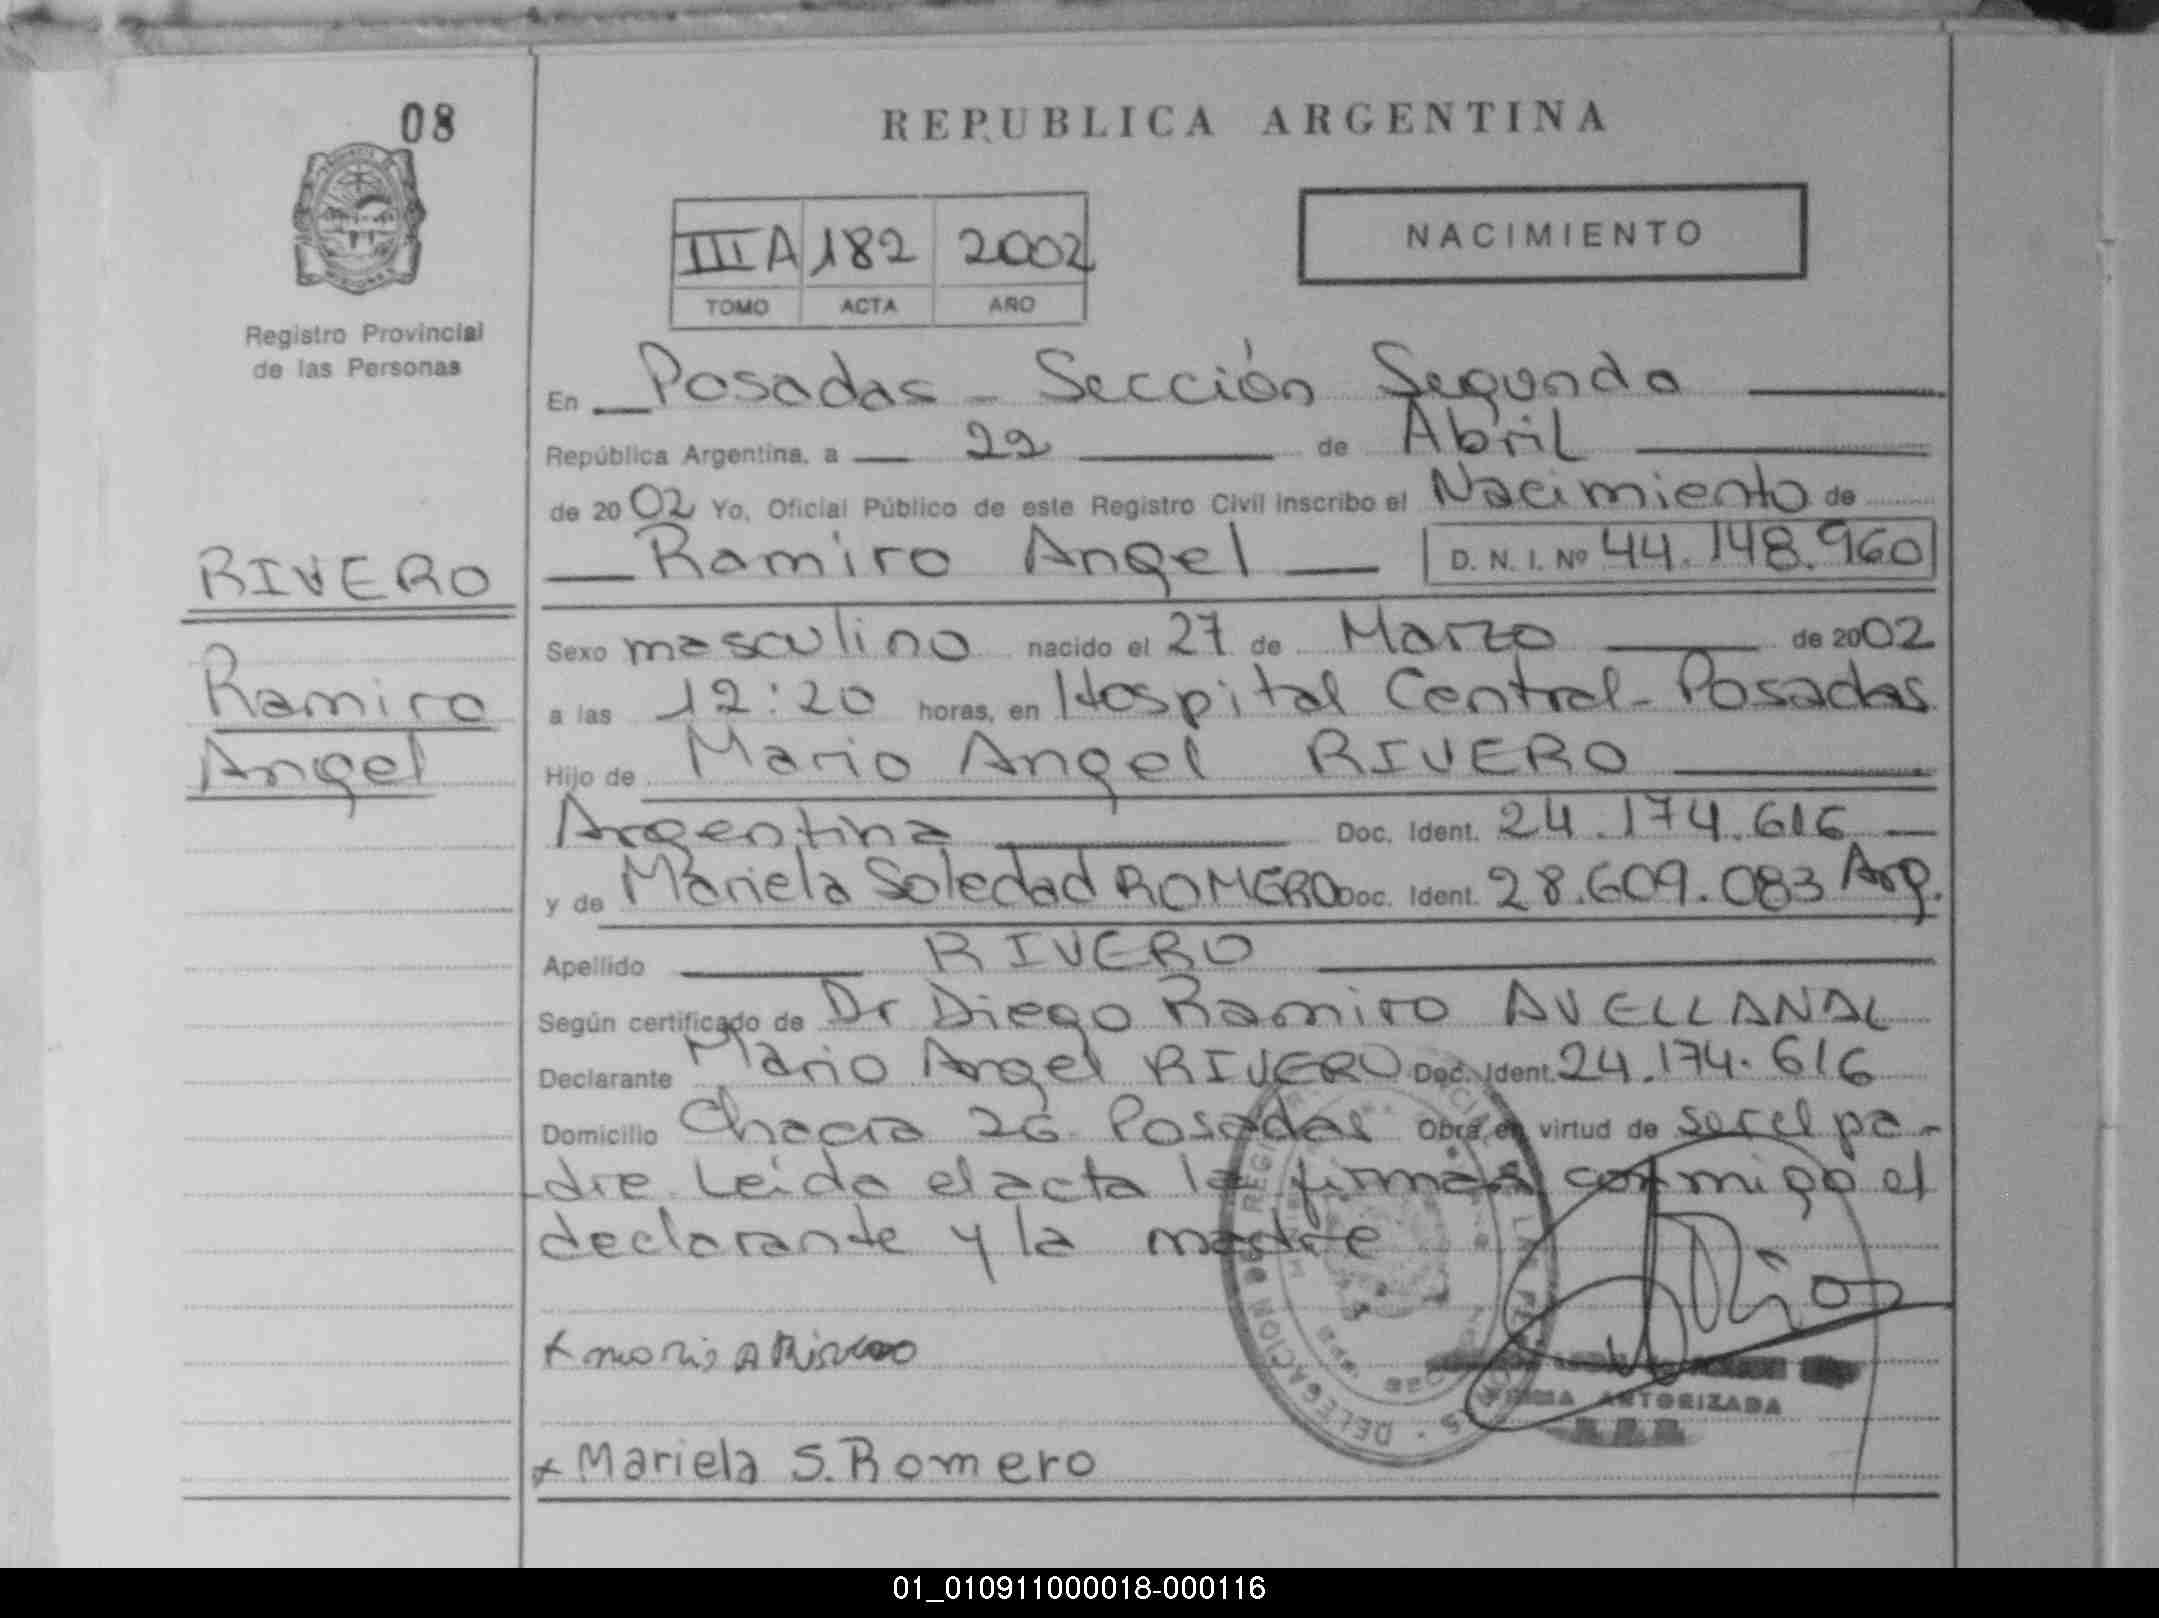 08
REPUBLICA ARGENTINA
III A 182 2002
TOMO ACTA AÑO
NACIMIENTO
Registro Provincial
de las Personas
En Posadas - Sección Segunda
República Argentina, a 22 de Abril
de 2002 Yo, Oficial Público de este Registro Civil inscribo el Nacimiento de
Ramiro Angel D. N. I. Nº 44.148.960
RIVERO
Ramiro
Angel
Sexo masculino nacido el 27 de Marzo de 2002
a las 12:20 horas, en Hospital Central - Posadas
Hijo de Mario Angel RIVERO
Argentina Doc. Ident. 24.174.616
y de Mariela Soledad ROMERO Doc. Ident. 28.609.083 Arg.
Apellido RIVERO
Según certificado de Dr Diego Ramiro AVELLANAL
Declarante Mario Angel RIVERO Doc. Ident. 24.174.616
Domicilio Chacra 26 Posadas Obra en virtud de ser el pa-
dre. Leida el acta la firman conmigo el
declarante y la madre
Mario A Rivero
AUTORIZADA
x Mariela S. Romero
DELEGACION
01_010911000018-000116